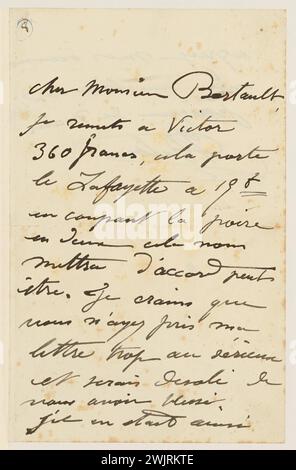 cher Monsieur Bertault,
je remets a Victor
360 francs, cela porte
le Lafayette a 19f
en coupant la poire
en deux cela nous
mettra d'accord peut
être. Je crains que
vous n'ayez pris ma
lettre trop au sérieux
et serais desolé de
vous avoir blessé
s'il en était ainsi
alamy
Image ID: 2WJRKTE
www.alamy.com